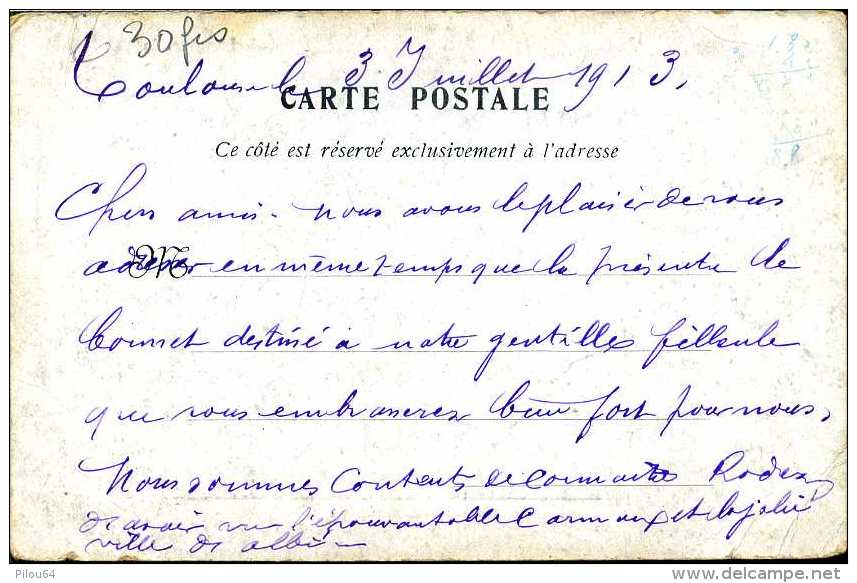 30 frs
Toulouse le 3 Juillet 1913,
CARTE POSTALE
Ce côté est réservé exclusivement à l'adresse
Chers amis - nous avons le plaisir de vous
adresser en même temps que la présente le
bonnet destiné à notre gentilles filleule
que vous embrasserez bien fort pour nous,
Nous sommes contents de connaitre Rodez
d'avoir vu l'épouvantable Carmaux et la jolie
ville de albi -
Pilou64
www.delcampe.net